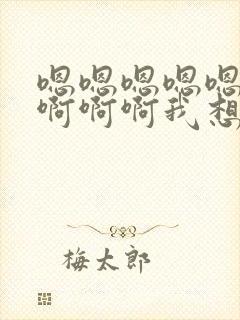 嗯嗯嗯嗯嗯
啊啊啊我想
梅太郎